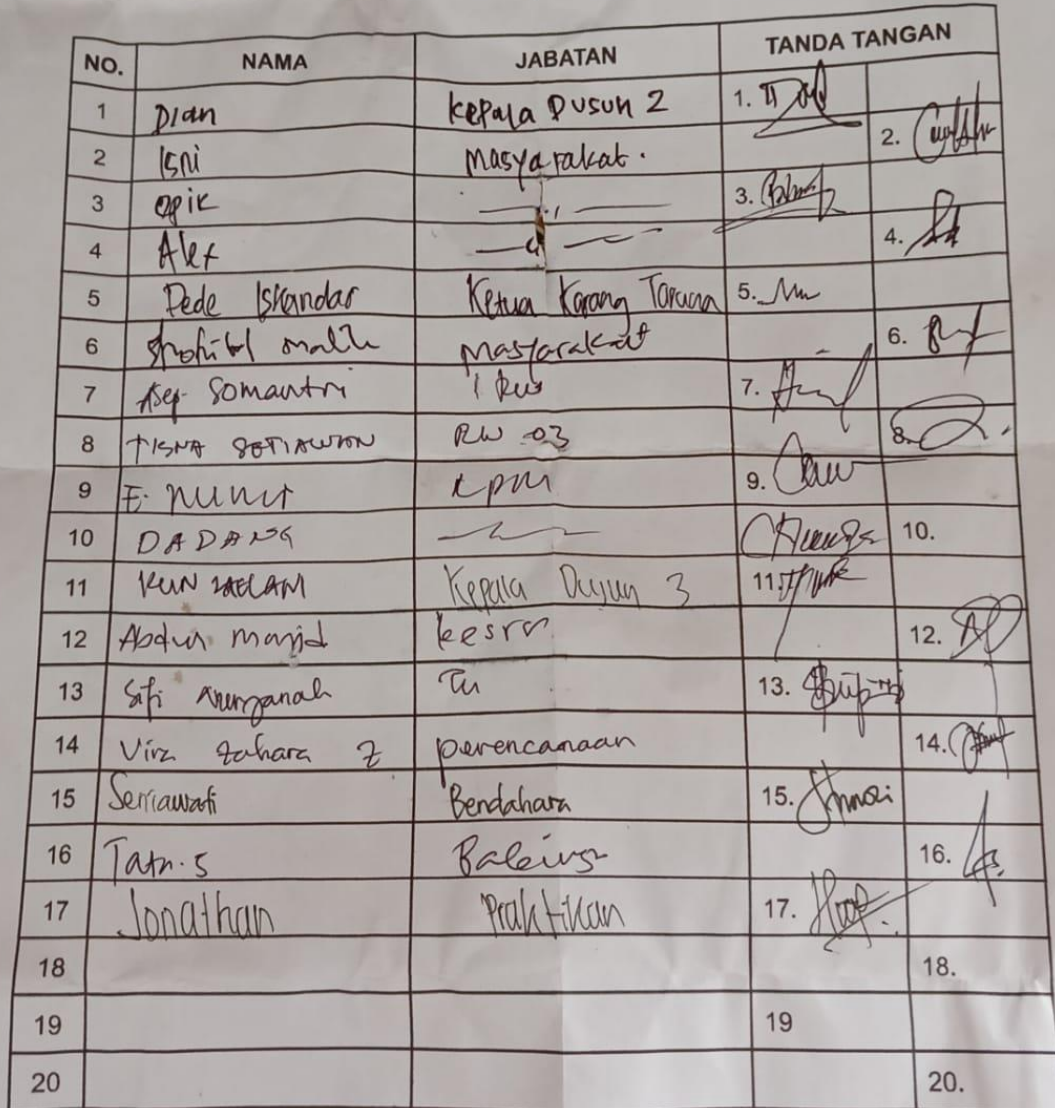 NO. NAMA JABATAN TANDA TANGAN
1 Dian Kepala Dusun 2 1.
2 Isni Masyarakat. 2.
3 Opik 3.
4 Alex 4.
5 Dede Iskandar Ketua Karang Taruna 5.
6 malik Masyarakat 6.
7 Asep Somantri 7.
8 TISNA SETIAWAN RW 03 8.
9 E. kpm 9.
10 DADANG 10.
11 Kepala Dusun 3 11.
12 Abdul Majid kesra 12.
13 Siti TU 13.
14 Vira Zahara Z perencanaan 14.
15 Bendahara 15.
16 16.
17 Jonathan Praktikan 17.
18 18.
19 19
20 20.